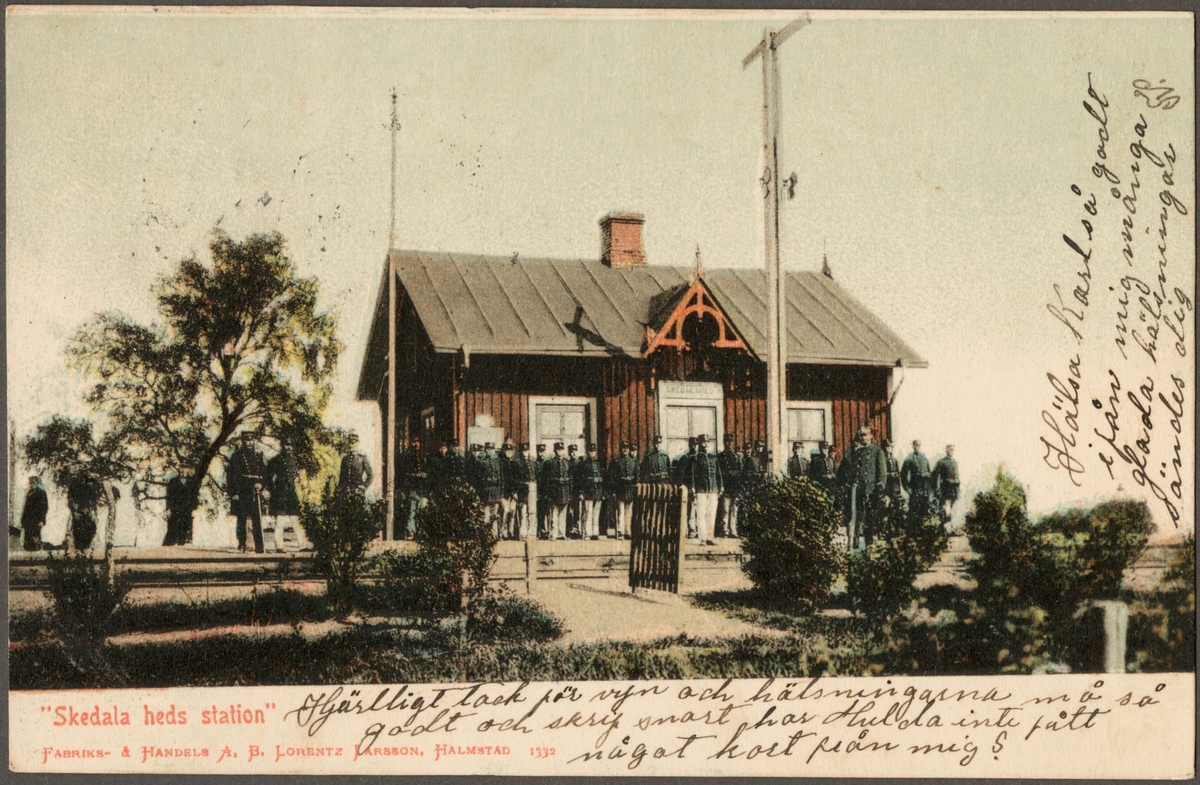 SKEDALAHED
"Skedala heds station"
FABRIKS- & HANDELS A. B. LORENTZ LARSSON, HALMSTAD 1332
Hjärtligt tack för vyn och hälsningarna må så
godt och skrif snart har Hulda inte fått
något kort från mig?
Hälsa Karl så godt
ifrån mig många
glada hälsningar
sändes dig